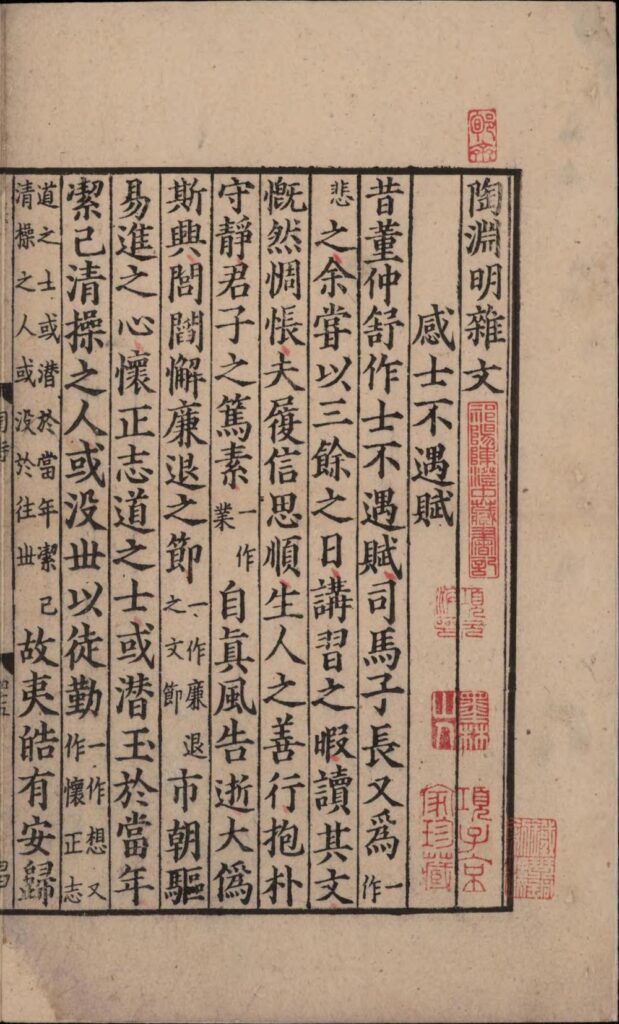 陶淵明雜文
感士不遇賦
昔董仲舒作士不遇賦司馬子長又爲一作
悲之余甞以三餘之日講習之暇讀其文
慨然惆悵夫履信思順生人之善行抱朴
守靜君子之篤素一作業自眞風告逝大僞
斯興閭閻懈廉退之節一作廉退之文節市朝驅
易進之心懷正志道之士或潜玉於當年
潔己清操之人或没丗以徒勤一作想又作懷正志
道之士或潜於當年潔己清操之人或没於往丗故夷皓有安歸
祁陽陳澄中藏書記
項元汴印
墨林山人
項子京家珍藏